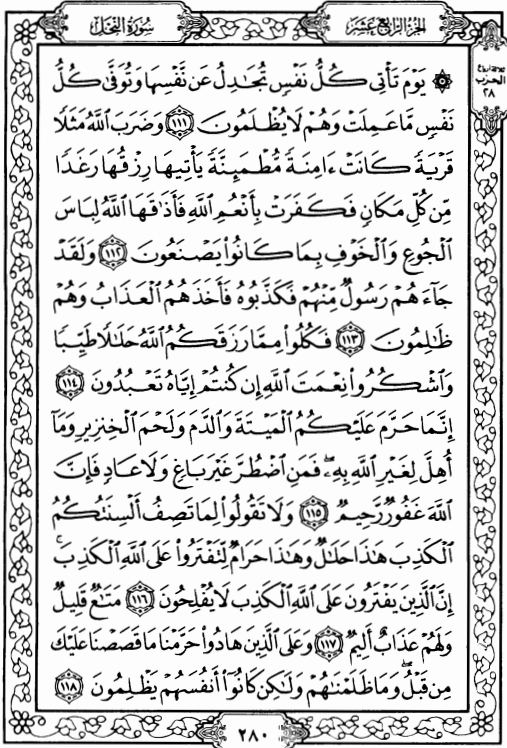 سُورَةُ النَّحْلِ
الجُزْءُ الرَّابِعَ عَشَرَ
الحزب
٢٨
۞ يَوْمَ تَأْتِي كُلُّ نَفْسٍ تُجَٰدِلُ عَن نَّفْسِهَا وَتُوَفَّىٰ كُلُّ
نَفْسٍ مَّا عَمِلَتْ وَهُمْ لَا يُظْلَمُونَ ١١١ وَضَرَبَ ٱللَّهُ مَثَلًا
قَرْيَةً كَانَتْ ءَامِنَةً مُّطْمَئِنَّةً يَأْتِيهَا رِزْقُهَا رَغَدًا
مِّن كُلِّ مَكَانٍ فَكَفَرَتْ بِأَنْعُمِ ٱللَّهِ فَأَذَٰقَهَا ٱللَّهُ لِبَاسَ
ٱلْجُوعِ وَٱلْخَوْفِ بِمَا كَانُوا۟ يَصْنَعُونَ ١١٢ وَلَقَدْ
جَآءَهُمْ رَسُولٌ مِّنْهُمْ فَكَذَّبُوهُ فَأَخَذَهُمُ ٱلْعَذَابُ وَهُمْ
ظَٰلِمُونَ ١١٣ فَكُلُوا۟ مِمَّا رَزَقَكُمُ ٱللَّهُ حَلَٰلًا طَيِّبًا
وَٱشْكُرُوا۟ نِعْمَتَ ٱللَّهِ إِن كُنتُمْ إِيَّاهُ تَعْبُدُونَ ١١٤
إِنَّمَا حَرَّمَ عَلَيْكُمُ ٱلْمَيْتَةَ وَٱلدَّمَ وَلَحْمَ ٱلْخِنزِيرِ وَمَآ
أُهِلَّ لِغَيْرِ ٱللَّهِ بِهِۦ ۖ فَمَنِ ٱضْطُرَّ غَيْرَ بَاغٍ وَلَا عَادٍ فَإِنَّ
ٱللَّهَ غَفُورٌ رَّحِيمٌ ١١٥ وَلَا تَقُولُوا۟ لِمَا تَصِفُ أَلْسِنَتُكُمُ
ٱلْكَذِبَ هَٰذَا حَلَٰلٌ وَهَٰذَا حَرَامٌ لِّتَفْتَرُوا۟ عَلَى ٱللَّهِ ٱلْكَذِبَ ۚ
إِنَّ ٱلَّذِينَ يَفْتَرُونَ عَلَى ٱللَّهِ ٱلْكَذِبَ لَا يُفْلِحُونَ ١١٦ مَتَٰعٌ قَلِيلٌ
وَلَهُمْ عَذَابٌ أَلِيمٌ ١١٧ وَعَلَى ٱلَّذِينَ هَادُوا۟ حَرَّمْنَا مَا قَصَصْنَا عَلَيْكَ
مِن قَبْلُ ۖ وَمَا ظَلَمْنَٰهُمْ وَلَٰكِن كَانُوٓا۟ أَنفُسَهُمْ يَظْلِمُونَ ١١٨
٢٨٠